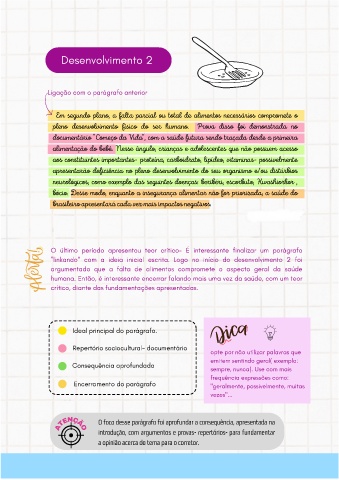 Desenvolvimento 2
Ligação com o parágrafo anterior
Em segundo plano, a falta parcial ou total de alimentos necessários compromete o
pleno desenvolvimento físico do ser humano. Prova disso foi demonstrada no
documentário "Começo da Vida", com a saúde futura sendo traçada desde a primeira
alimentação do bebê. Nesse ângulo, crianças e adolescentes que não possuem acesso
aos constituintes importantes- proteína, carboidrato, lipídeo, vitaminas- possivelmente
apresentarão deficiência no pleno desenvolvimento do seu organismo e/ou distúrbios
neurológicos, como exemplo das seguintes doenças: beribéri, escorbuto, Kwashiorkor,
bócio. Desse modo, enquanto a insegurança alimentar não for priorizada, a saúde do
brasileiro apresentará cada vez mais impactos negativos.
Alerta!
O último período apresentou teor crítico- É interessante finalizar um parágrafo
"linkando" com a ideia inicial escrita. Logo no início do desenvolvimento 2 foi
argumentado que a falta de alimentos compromete o aspecto geral da saúde
humana. Então, é interessante encerrar falando mais uma vez da saúde, com um teor
crítico, diante das fundamentações apresentadas.
Ideal principal do parágrafo.
Repertório sociocultural- documentário
Consequência aprofundada
Encerramento do parágrafo
Dica
opte por não utilizar palavras que
emitem sentido geral( exemplo:
sempre, nunca). Use com mais
frequência expressões como:
"geralmente, possivelmente, muitas
vezes"...
ATENÇÃO
O foco desse parágrafo foi aprofundar a consequência, apresentada na
introdução, com argumentos e provas- repertórios- para fundamentar
a opinião acerca de tema para o corretor.